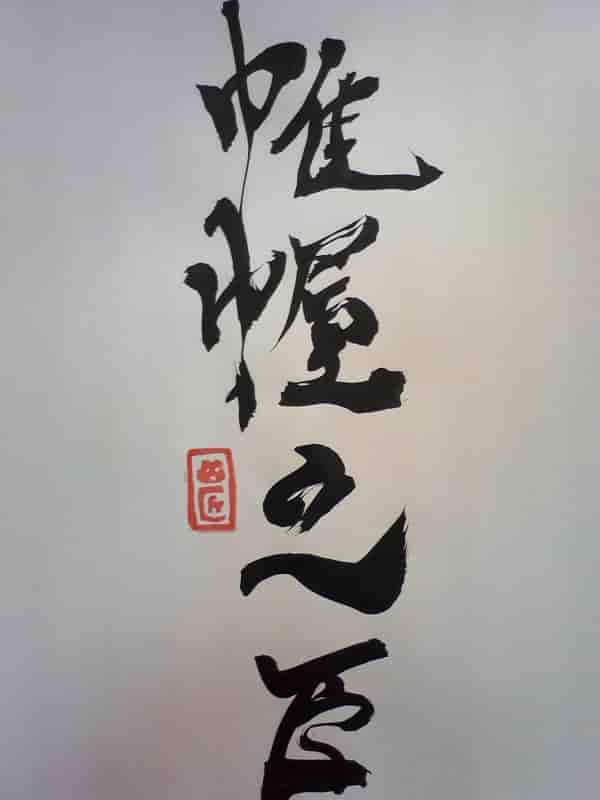 帷幄之臣